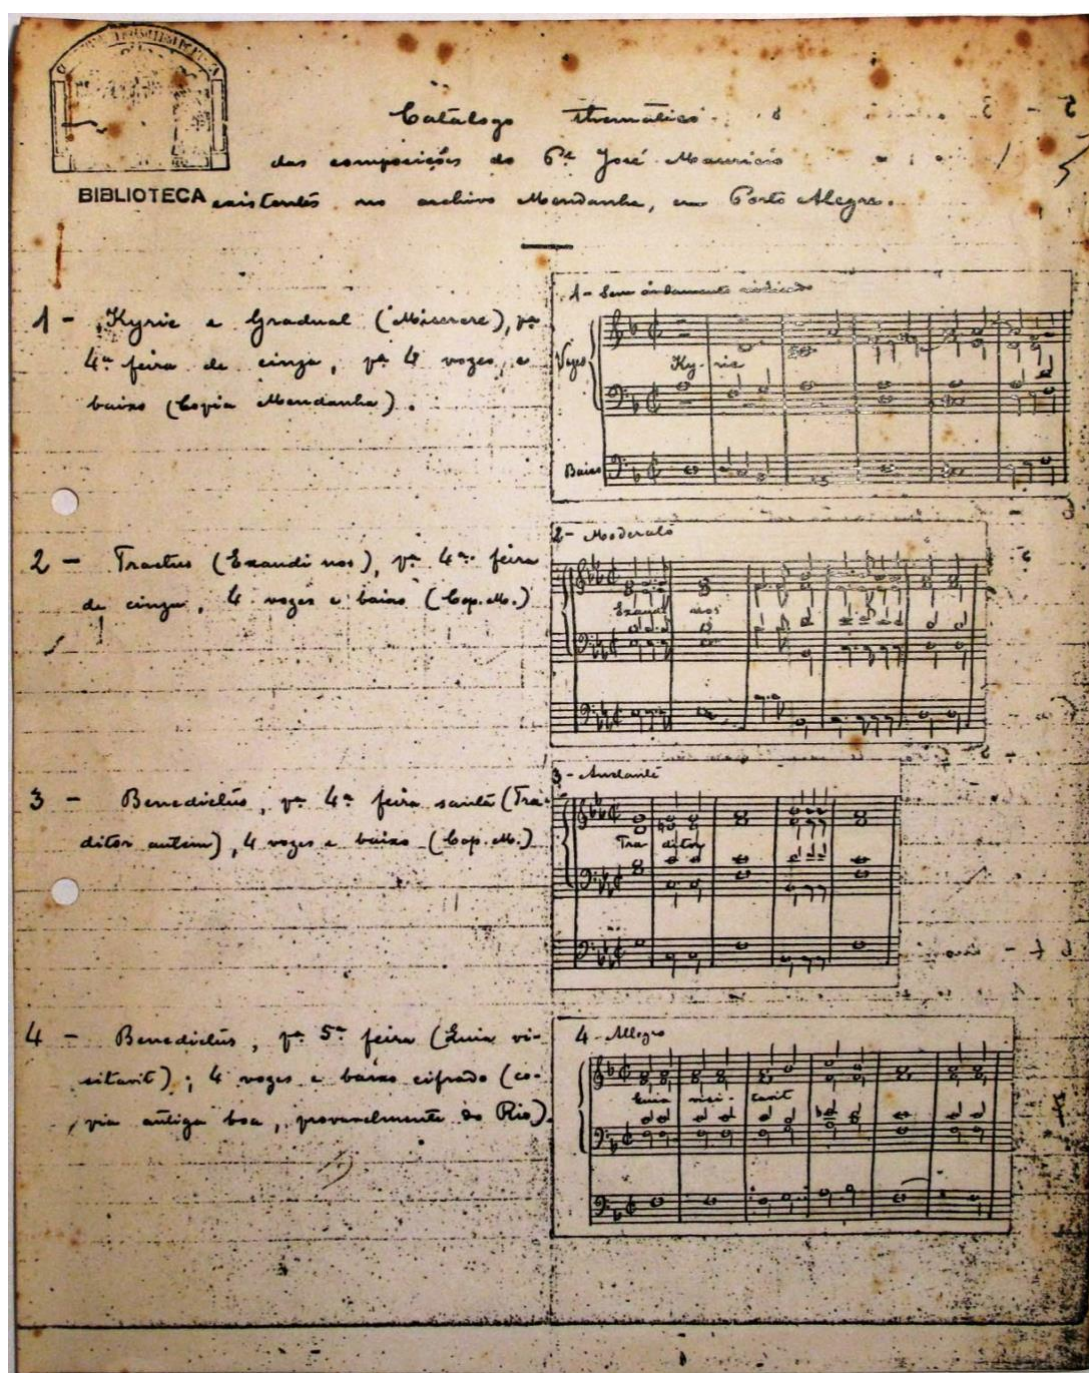 BIBLIOTECA
Catálogo thematico
das composições do Pe José Mauricio
existentes no archivo Mendanha, em Porto Alegre.
1 - Kyrie e Gradual (Miserere), pa
4a feira de cinza, pa 4 vozes, e
baixo (Copia Mendanha).
1 - Sem andamento indicado
Vozes
Ky - rie
Baixo
2 - Tractus (Exaudi nos), pa 4a feira
de cinza, 4 vozes e baixo (Cop. M.)
2 - Moderato
Exaudi nos
3 - Benedictus, pa 4a feira santa (Tra-
ditor autem), 4 vozes e baixo (Cop. M.)
3 - Andante
Tra ditor
4 - Benedictus, pa 5a feira (Quia vi-
sitavit); 4 vozes e baixo cifrado (co-
pia antiga boa, provavelmente do Rio).
4 - Allegro
Quia visi - tavit